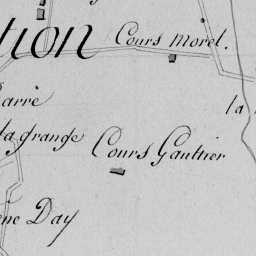 tion
Cours morel.
Barrè
la
la grange
Cours Gaultier
ène Day